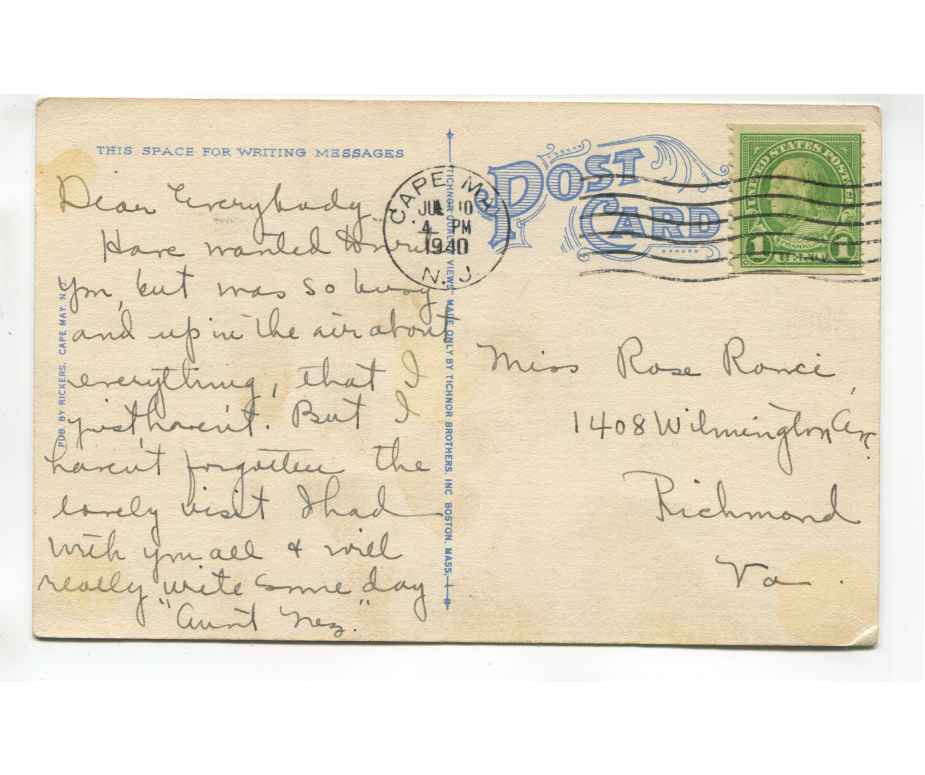 THIS SPACE FOR WRITING MESSAGES
Dear Everybody
Have wanted to write
you, but was so busy
and up in the air about
everything, that I
just haven't. But I
haven't forgotten the
lovely visit I had
with you all & will
really write some day
"Aunt Nez."
PUB. BY RICKERS, CAPE MAY, N.
MADE ONLY BY TICHNOR BROTHERS, INC. BOSTON, MASS.
POST
CARD
CAPE MAY
JUL 10
4 PM
1940
N.J.
UNITED STATES POSTAGE
FRANKLIN
1 CENT 1
Miss Rose Ronci,
1408 Wilmington Ave.
Richmond
Va.